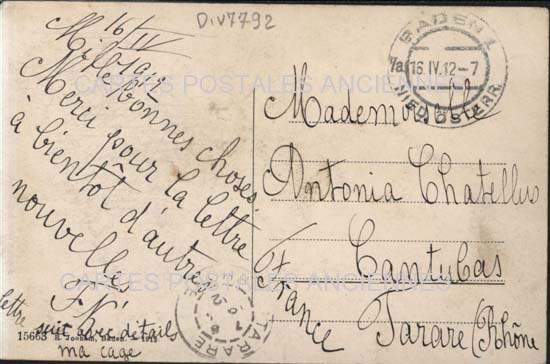 D.V7792
16/IV
Mille bonnes choses.
Merci pour la lettre
à bientôt d'autres
nouvelles
lettre suit avec détails
ma cage
15663
BADEN 1
7a 16.IV.12-7
NIED.ÖSTERR.
Mademoiselle
Antonia Chatellus
Cantubas
Tarare (Rhône
France
TARARE
CARTES POSTALES ANCIENNES
CARTES POSTALES ANCIENNES